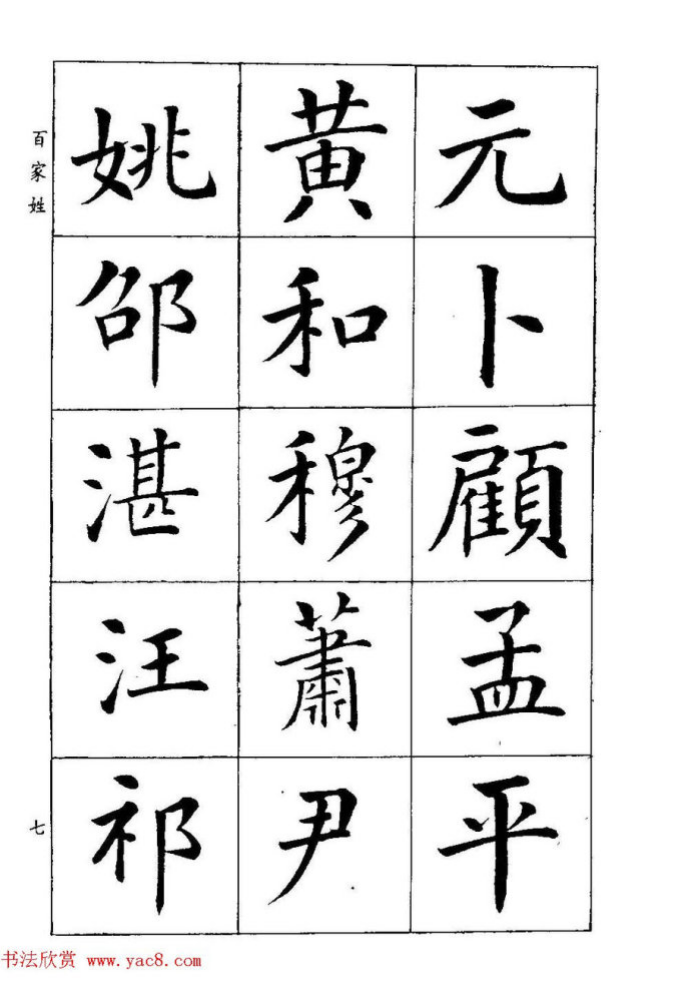 元卜顧孟平
黄和穆蕭尹
姚邵湛汪祁
百家姓
七
书法欣赏 www.yac8.com